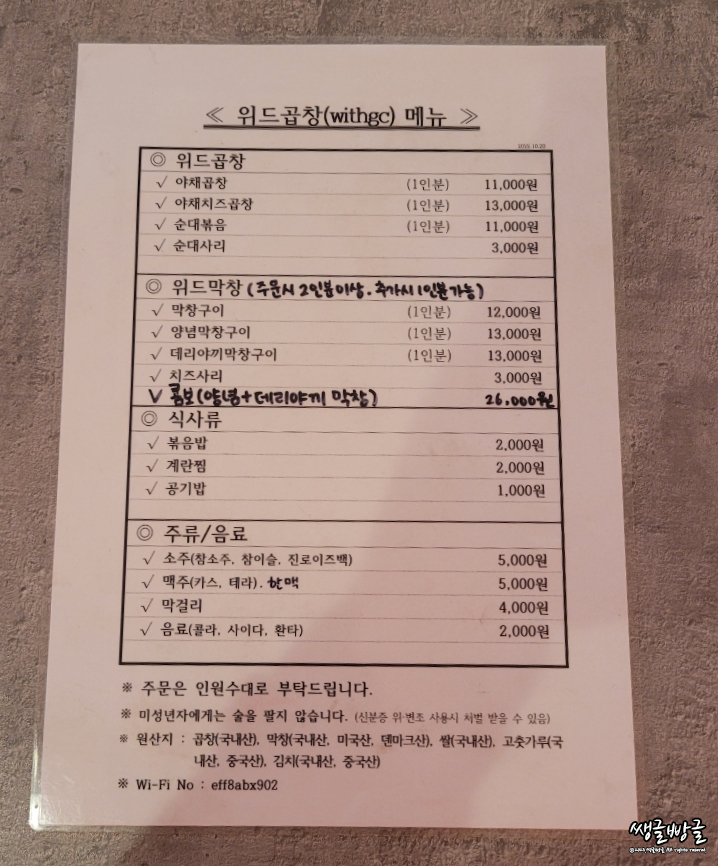 ≪ 위드곱창(withgc) 메뉴 ≫
◎ 위드곱창
✓ 야채곱창 (1인분) 11,000원
✓ 야채치즈곱창 (1인분) 13,000원
✓ 순대볶음 (1인분) 11,000원
✓ 순대사리 3,000원
◎ 위드막창 (주문시 2인분이상. 추가시 1인분가능)
✓ 막창구이 (1인분) 12,000원
✓ 양념막창구이 (1인분) 13,000원
✓ 데리야끼막창구이 (1인분) 13,000원
✓ 치즈사리 3,000원
V 콤보(양념+데리야끼 막창) 26,000원
◎ 식사류
✓ 볶음밥 2,000원
✓ 계란찜 2,000원
✓ 공기밥 1,000원
◎ 주류/음료
✓ 소주(참소주, 참이슬, 진로이즈백) 5,000원
✓ 맥주(카스, 테라). 한맥 5,000원
✓ 막걸리 4,000원
✓ 음료(콜라, 사이다, 환타) 2,000원
※ 주문은 인원수대로 부탁드립니다.
※ 미성년자에게는 술을 팔지 않습니다. (신분증 위·변조 사용시 처벌 받을 수 있음)
※ 원산지 : 곱창(국내산), 막창(국내산, 미국산, 덴마크산), 쌀(국내산), 고춧가루(국
내산, 중국산), 김치(국내산, 중국산)
※ Wi-Fi No : eff8abx902
쌩글빵글